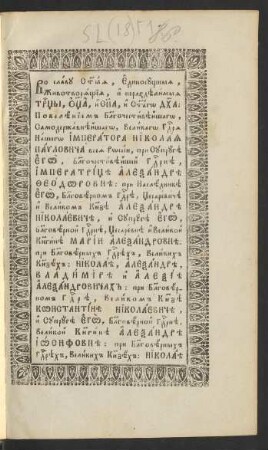 Во славу Ст҃ыѧ, Єдиносꙋщныѧ,
Животворѧщіѧ, и нераздѣлимыѧ
ТРЦ҃Ы, ОЦ҃А, и СН҃А, и Ст҃агѡ ДХ҃А:
Повелѣніемъ Бл҃гочестивѣйшагѡ,
Самодержавнѣйшагѡ, Великагѡ Гдⷭ҇рѧ
Нашегѡ ІМПЕРАТОРА НІКОЛАѦ
ПАѴЛОВИЧА всеѧ Рѡссіи, при Сꙋпрꙋгѣ
ЄГѠ, Бл҃гочестивѣйшей Гдⷭ҇рнѣ,
ІМПЕРАТРИЦѢ АЛЕѮАНДРѢ
ѲЕОДѠРОВНѢ: при Наслѣдникѣ
ЄГѠ, Бл҃говѣрномъ Гдⷭ҇рѣ, Цесаревичѣ
и Великомъ Кнѧзѣ АЛЕѮАНДРѢ
НІКОЛАЕВИЧѢ, и Сꙋпрꙋгѣ ЄГѠ,
Бл҃говѣрной Гдⷭ҇рнѣ, Цесаревнѣ и Великой
Кнѧгинѣ МАРІИ АЛЕѮАНДРОВНѢ:
при Бл҃говѣрныхъ Гдⷭ҇рѣхъ, Великихъ
Кнѧзѣхъ: НІКОЛАѢ, АЛЕѮАНДРѢ,
ВЛАДИМІРѢ и АЛЕѮІѢ
АЛЕѮАНДРОВИЧАХЪ: при Бл҃говѣр-
номъ Гдⷭ҇рѣ, Великомъ Кнѧзѣ
КѠНСТАНТІНѢ НІКОЛАЕВИЧѢ,
и Сꙋпрꙋгѣ ЄГѠ, Бл҃говѣрной Гдⷭ҇рнѣ,
Великой Кнѧгинѣ АЛЕѮАНДРѢ
ІѠСИФОВНѢ: при Бл҃говѣрныхъ
Гдⷭ҇рѣхъ, Великихъ Кнѧзѣхъ: НІКОЛАѢ